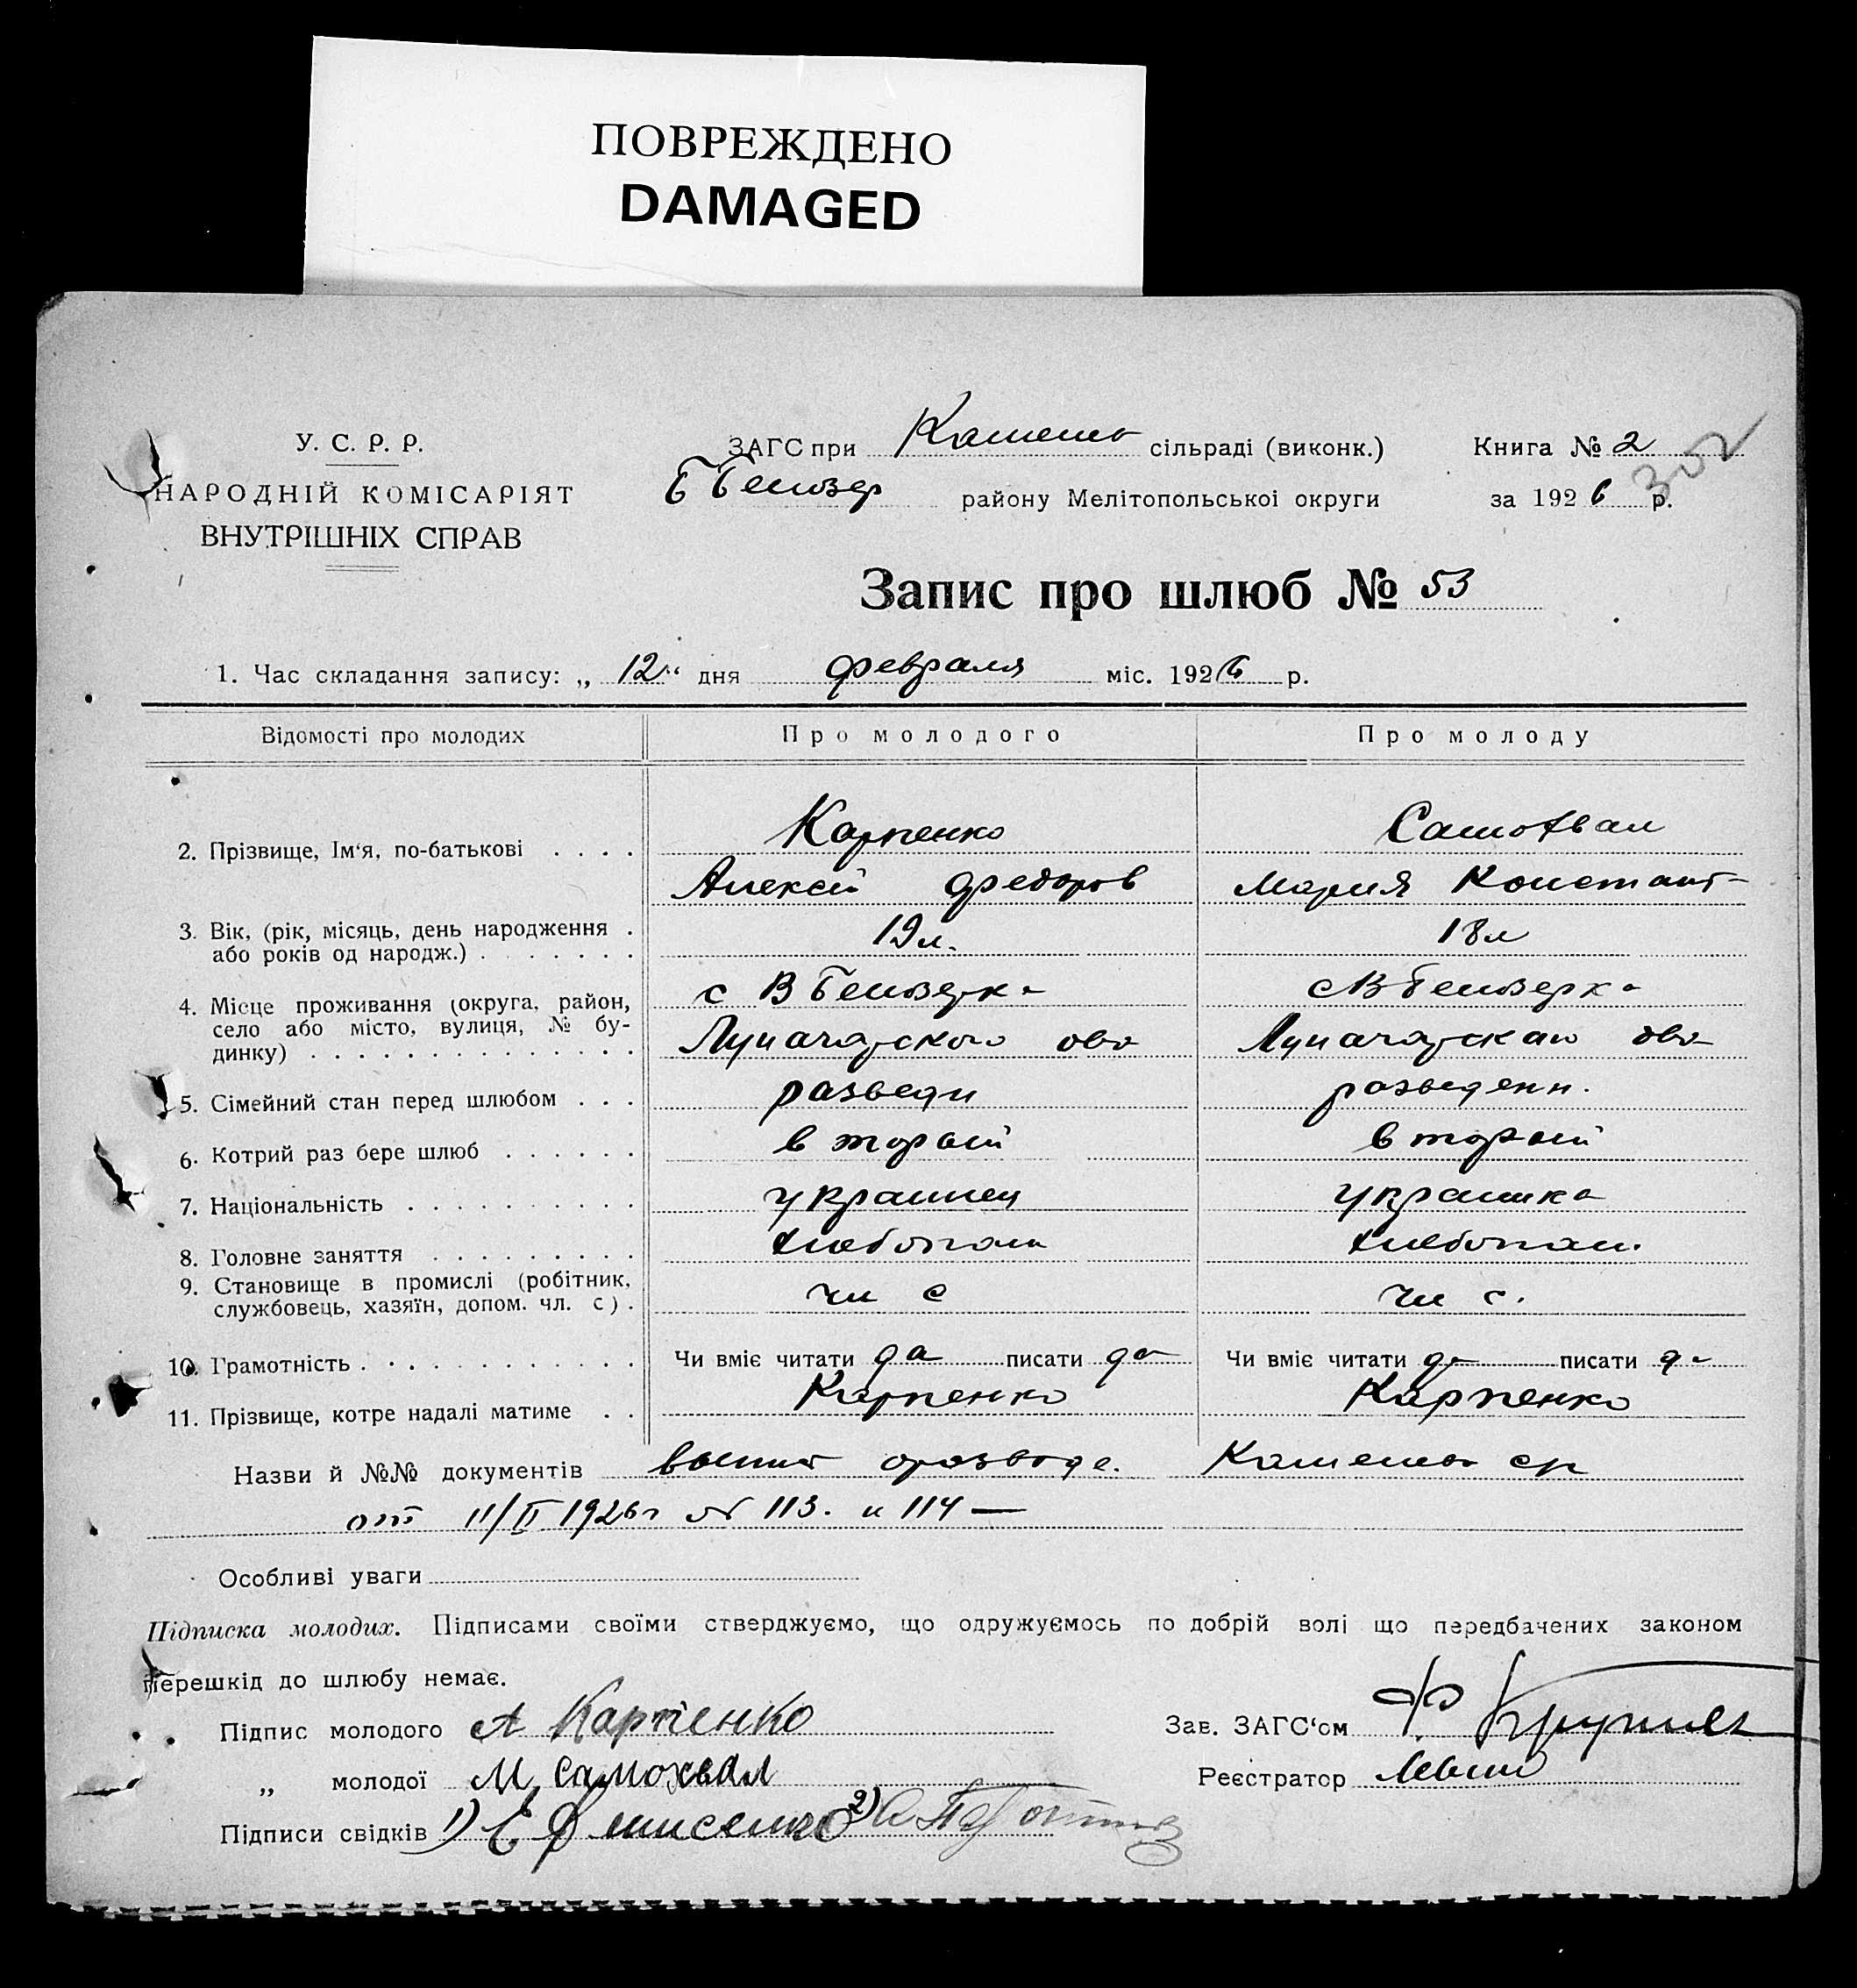 ПОВРЕЖДЕНО
DAMAGED
У. С. Р. Р.
НАРОДНІЙ КОМІСАРІЯТ
ВНУТРІШНІХ СПРАВ
ЗАГС при сільраді (виконк.)
району Мелітопольської округи
Книга № 2
за 1926 р.
302
Запис про шлюб № 53
1. Час складання запису: „ 12 “ дня февраля міс. 1926 р.
Відомості про молодих
Про молодого
Про молоду
2. Прізвище, Ім‘я, по-батькові . . . .
Карпенко
Самохвал
Алексей Федоров
Мария Констант-
3. Вік, (рік, місяць, день народження .
або років од народж.) . . . . . . .
19 л.
18 л
4. Місце проживання (округа, район,
село або місто, вулиця, № бу-
динку) . . . . . . . . . . . . . .
с В Белозерка
с В Белозерка
Луначарского
Луначарская
5. Сімейний стан перед шлюбом . . .
разведн
разведенн.
6. Котрий раз бере шлюб . . . . . .
второй
второй
7. Національність . . . . . . . . . .
украинец
украинка
8. Головне заняття . . . . . . . . .
хлебопаш
хлебопаш.
9. Становище в промислі (робітник,
службовець, хазяїн, допом. чл. с) .
чл с
чл с.
10. Грамотність . . . . . . . . . . .
Чи вміє читати да писати да
Чи вміє читати да писати да
11. Прізвище, котре надалі матиме . .
Карпенко
Карпенко
Назви й №№ документів о разводе.
от 11/II 1926 г № 113. и 114 —
Особливі уваги
Підписка молодих. Підписами своїми стверджуємо, що одружуємось по добрій волі що передбачених законом
перешкід до шлюбу немає.
Підпис молодого А Карпенко
Зав. ЗАГС‘ом Ф
„ молодої М Самохвал
Реєстратор
Підписи свідків 1) Е 2)